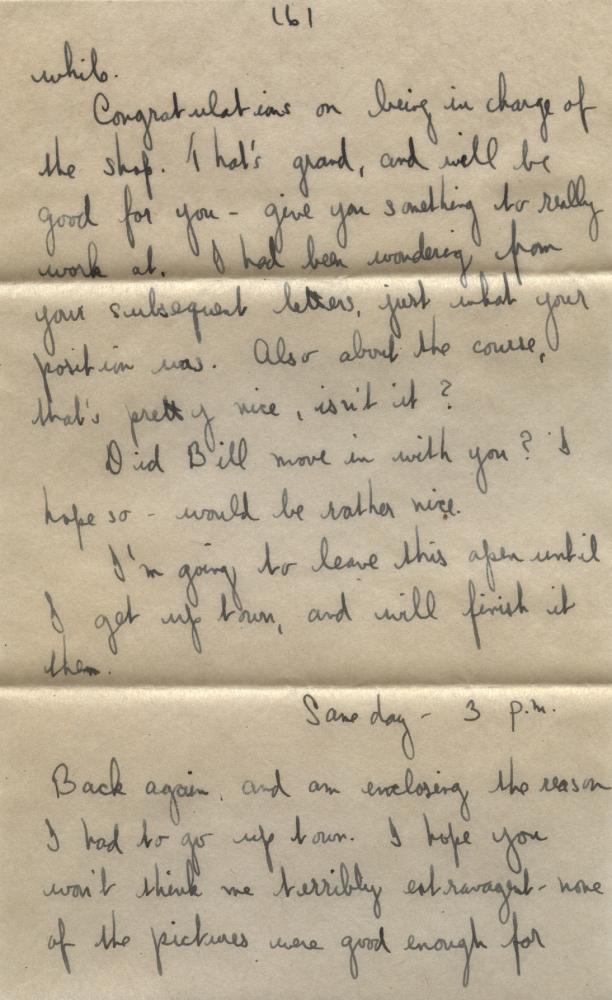 (6)
while.
Congratulations on being in charge of
the shop. That's grand, and will be
good for you - give you something to really
work at. I had been wondering from
your subsequent letters, just what your
position was. Also about the course,
that's pretty nice, isn't it?
Did Bill move in with you? I
hope so - would be rather nice.
I'm going to leave this open until
I get up town, and will finish it
then.
Same day - 3 p.m.
Back again, and am enclosing the reason
I had to go up town. I hope you
won't think me terribly extravagent - none
of the pictures were good enough for